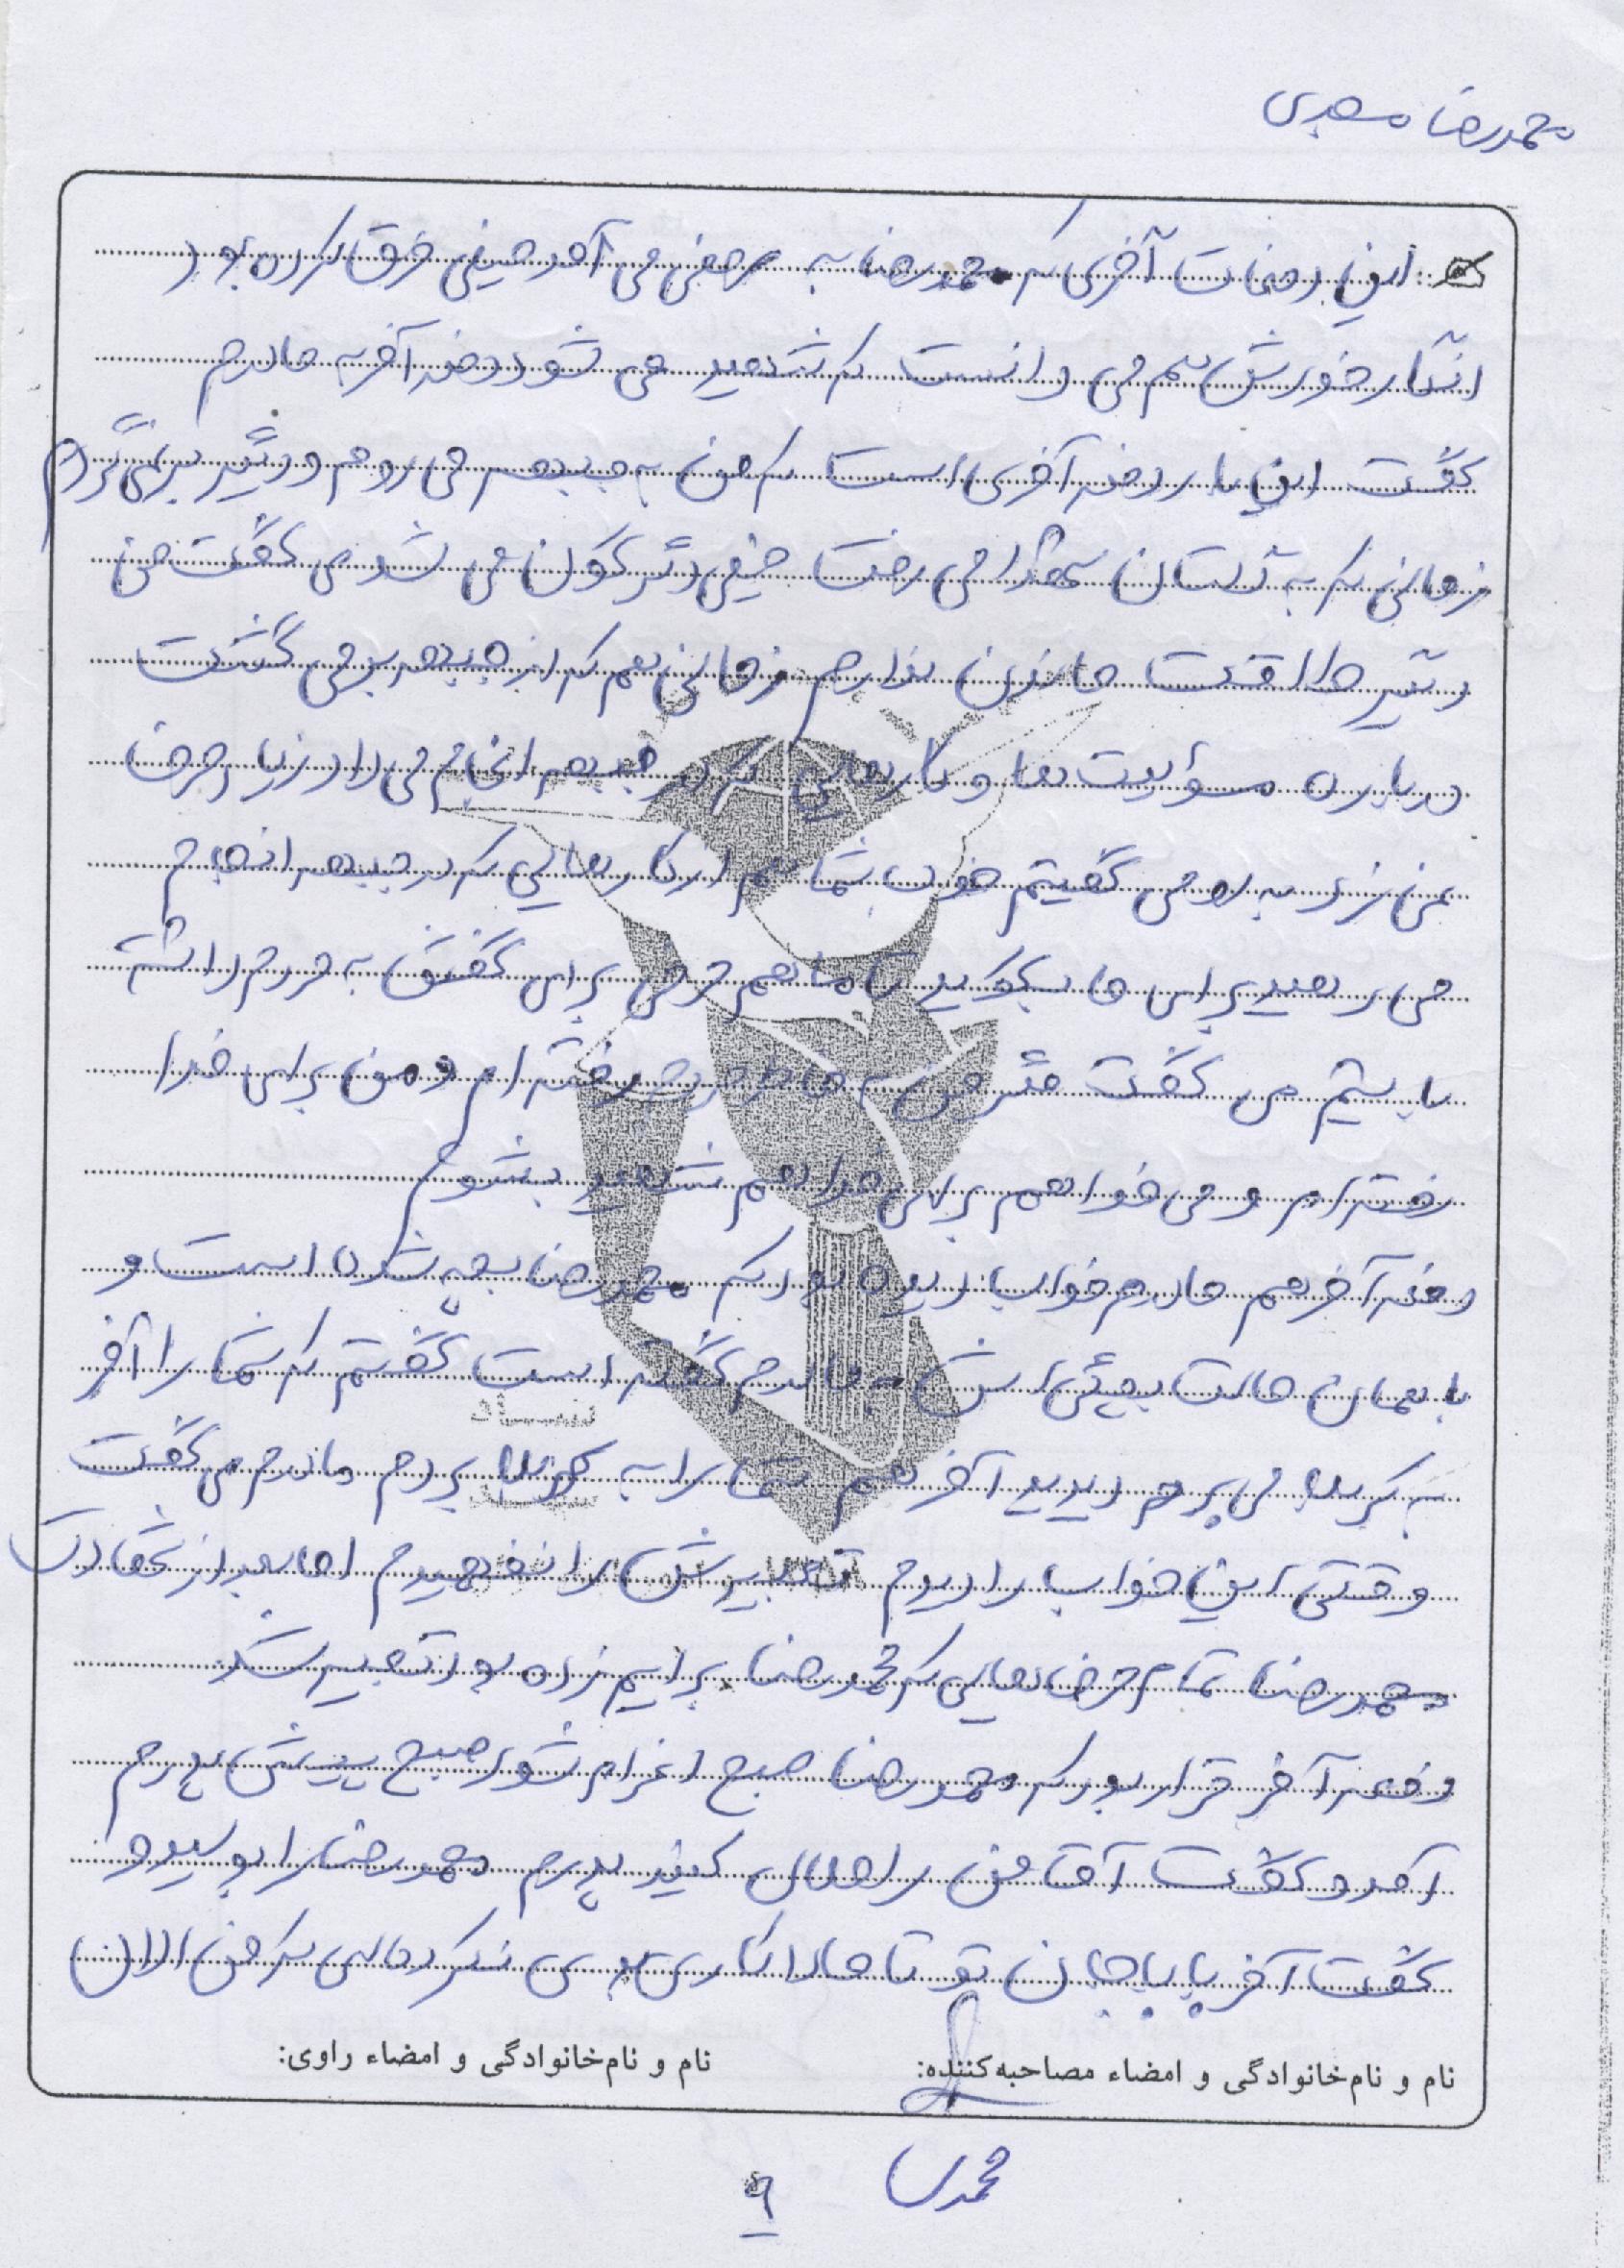 محمدرضا سعیدی
این دفعات آخری که محمدرضا به مرخصی می آمد خیلی فرق کرده بود
انگار خودش هم می دانست که شهید می شود دفعه آخر به مادرم
گفت این بار دفعه آخری است که من به جبهه می روم و دیگر برنمی گردم
زمانی که به گلستان شهدا می رفت خیلی دگرگون می شد می گفت من
دیگر طاقت ماندن ندارم زمانی هم که از جبهه برمی گشت
درباره مسؤلیت ها و کارهایی که در جبهه انجام می داد زیاد حرف
نمی زد به او می گفتیم خوب شما هم از کارهایی که در جبهه انجام
می دهید برای ما بگوئید تا ما هم حرفی برای گفتن به مردم داشته
باشیم می گفت مگر من به خاطر مردم رفته ام و من برای خدا
رفته ام و می خواهم برای خدا هم شهید بشوم
دفعه آخر هم مادرم خواب دیده بود که محمدرضا بچه شده است و
با همان حالت بچگی اش به مادرم گفته است گفتم که شما را آخر
به کربلا می برم دیدید آخر هم شما را به کربلا بردم مادرم می گفت
وقتی این خواب را دیدم تعبیرش را نفهمیدم اما بعد از شهادت
محمدرضا تمام حرف هایی که محمدرضا برایم زده بود تعبیر شد
دفعه آخر قرار بود که محمدرضا صبح اعزام شود صبح پیش پدرم
آمد و گفت آقا من را حلال کنید پدرم محمدرضا را بوسید و
گفت آخر باباجان تو تا حالا کار بدی نکرده ای که من الان
نام و نام‌خانوادگی و امضاء مصاحبه‌کننده:
نام و نام‌خانوادگی و امضاء راوی:
محمدی
۹